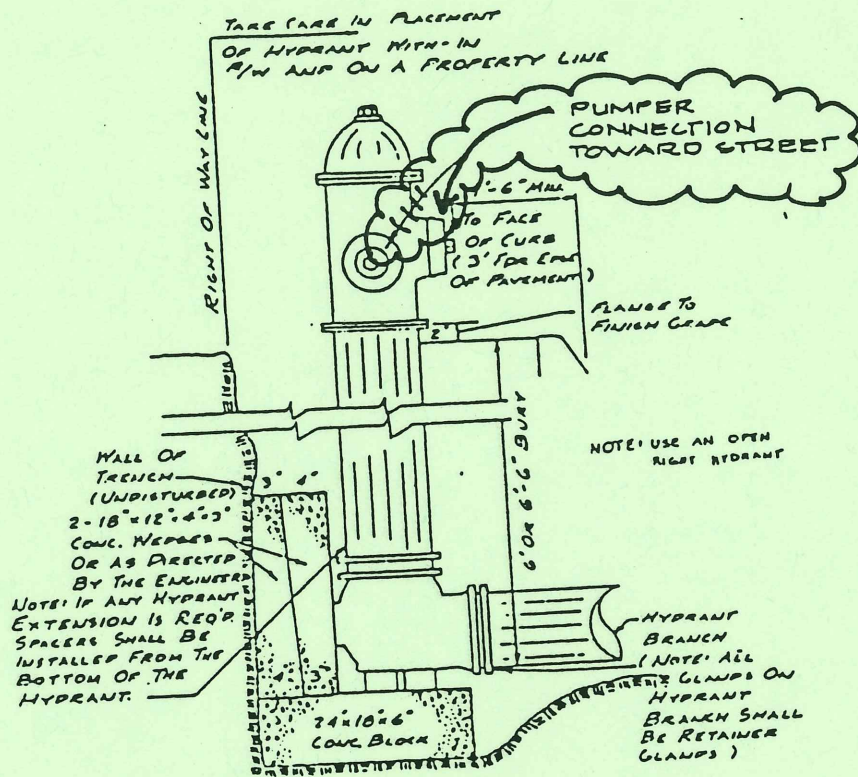 TAKE CARE IN PLACEMENT
OF HYDRANT WITH-IN
R/W AND ON A PROPERTY LINE
RIGHT OF WAY LINE
PUMPER
CONNECTION
TOWARD STREET
1'-6" MIN
TO FACE
OF CURB
(3' FOR EDGE
OF PAVEMENT)
2"
FLANGE TO
FINISH GRADE
6' OR 6'-6" BURY
NOTE: USE AN OPEN
RIGHT HYDRANT
WALL OF
TRENCH
(UNDISTURBED)
3" 4"
2-18"x12"x4"x3"
CONC. WEDGES
OR AS DIRECTED
BY THE ENGINEER
NOTE: IF ANY HYDRANT
EXTENSION IS REQ'D.
SPACERS SHALL BE
INSTALLED FROM THE
BOTTOM OF THE
HYDRANT.
4" 3"
24"x18"x6"
CONC. BLOCK
HYDRANT
BRANCH
(NOTE: ALL
GLANDS ON
HYDRANT
BRANCH SHALL
BE RETAINER
GLANDS)